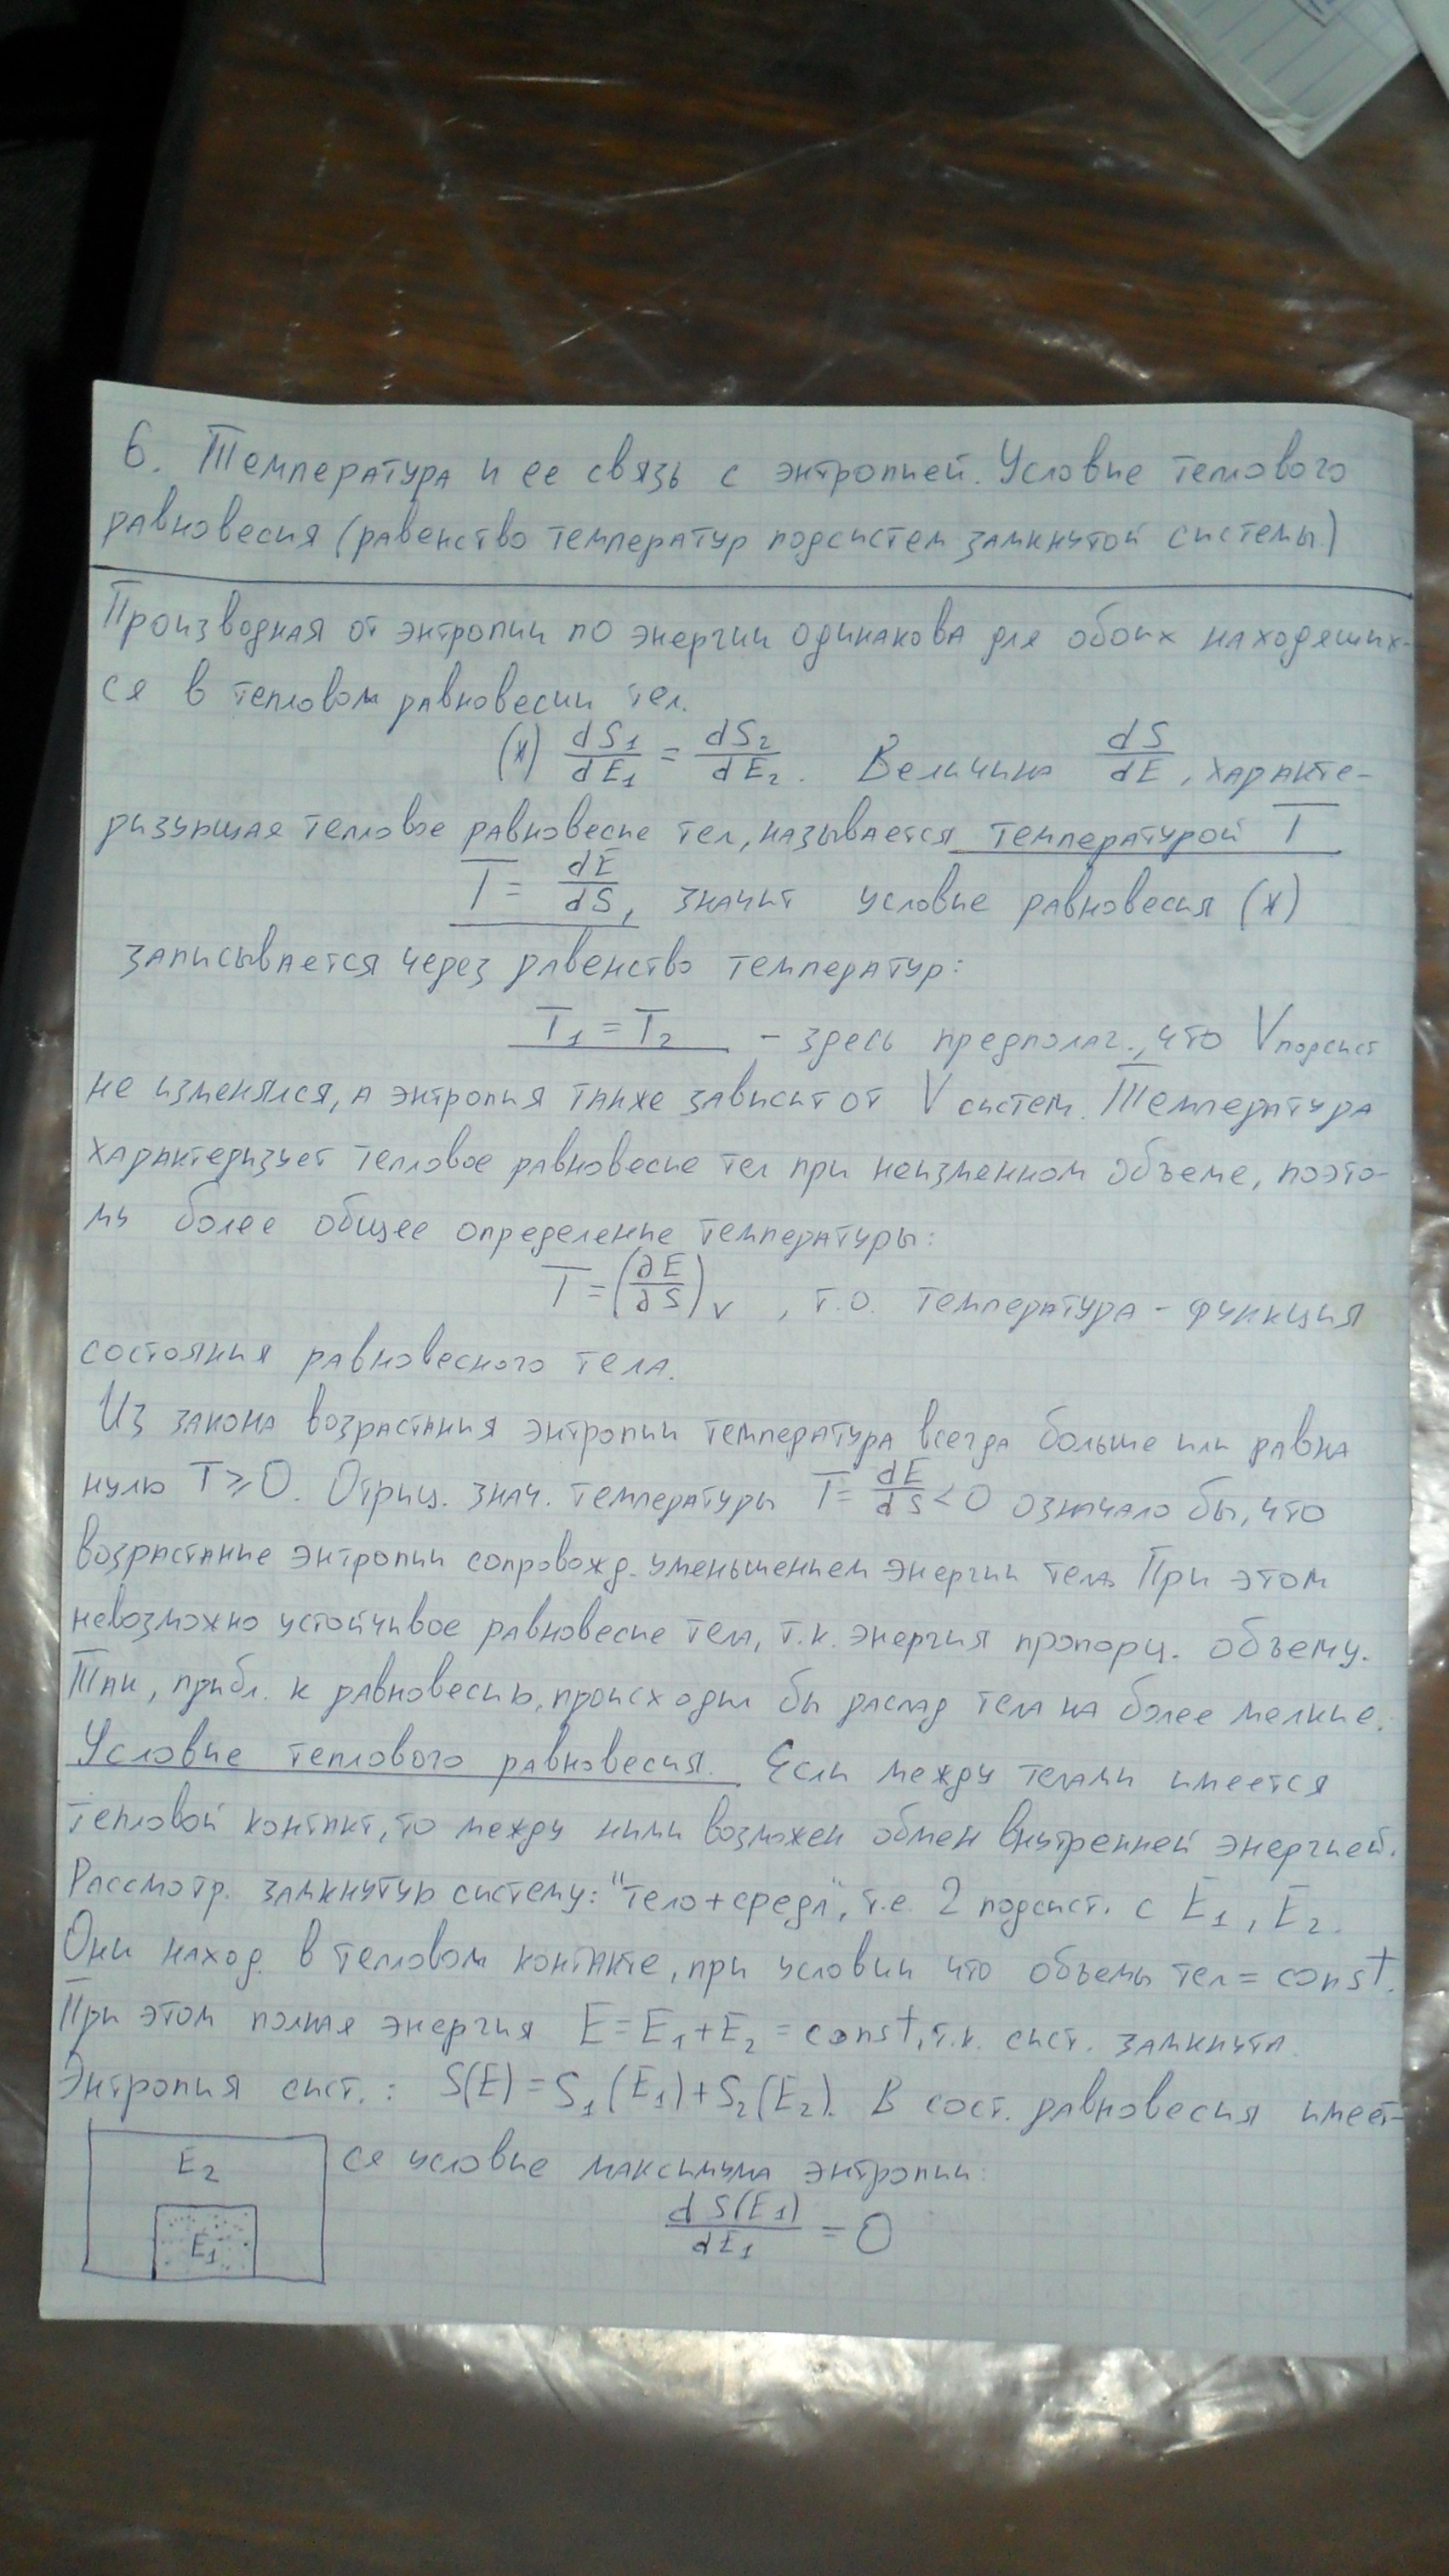 6. Температура и ее связь с энтропией. Условие теплового
равновесия (равенство температур подсистем замкнутой системы)
Производная от энтропии по энергии одинакова для обоих находящих-
ся в тепловом равновесии тел.
(*) dS₁/dE₁ = dS₂/dE₂. Величина dS/dE, характе-
ризующая тепловое равновесие тел, называется температурой T
T = dE/dS, значит условие равновесия (*)
записывается через равенство температур:
T₁ = T₂ – здесь предполаг., что V подсист
не изменялся, а энтропия также зависит от V систем. Температура
характеризует тепловое равновесие тел при неизменном объеме, поэто-
му более общее определение температуры:
T = (∂E/∂S)ᵥ, т.о. температура – функция
состояния равновесного тела.
Из закона возрастания энтропии температура всегда больше или равна
нулю T ⩾ 0. Отриц. знач. температуры T = dE/dS < 0 означало бы, что
возрастание энтропии сопровожд. уменьшением энергии тела. При этом
невозможно устойчивое равновесие тела, т.к. энергия пропорц. объему.
Так, прибл. к равновесию, происходил бы распад тела на более мелкие.
Условие теплового равновесия. Если между телами имеется
тепловой контакт, то между ними возможен обмен внутренней энергией.
Рассмотр. замкнутую систему: "тело+среда", т.е. 2 подсист. с E₁, E₂.
Они наход. в тепловом контакте, при условии что объемы тел = const.
При этом полная энергия E = E₁ + E₂ = const, т.к. сист. замкнута.
Энтропия сист.: S(E) = S₁(E₁) + S₂(E₂). В сост. равновесия имеет-
ся условие максимума энтропии:
dS(E₁)/dE₁ = 0
E₂
E₁